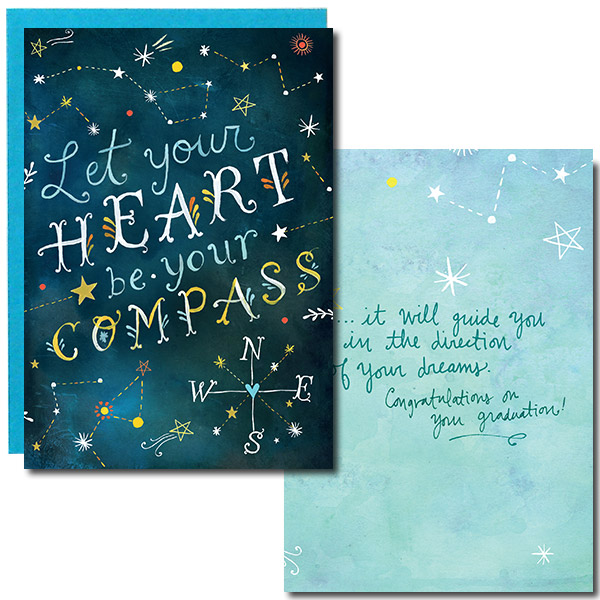 Let your
HEART
be·your
COMPASS
N
W E
S
... it will guide you
in the direction
of your dreams.
Congratulations on
your graduation!